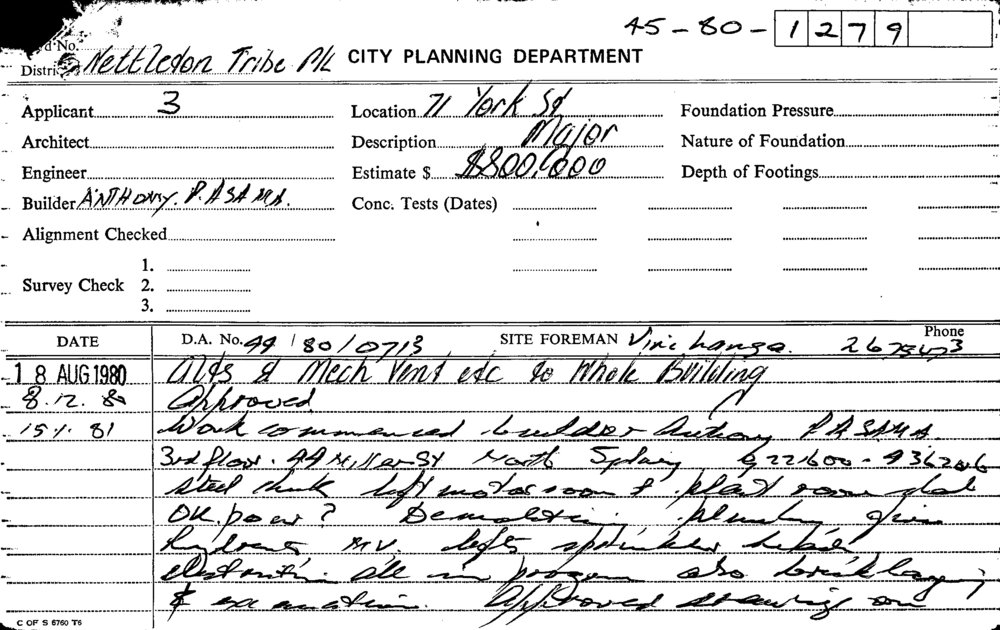 45-80-1279
d No.
Distri Nettledon Tribe P/L CITY PLANNING DEPARTMENT
Applicant 3 Location 71 York St Foundation Pressure
Architect Description Major Nature of Foundation
Engineer Estimate $ $800,000 Depth of Footings
Builder ANTHONY. P.ASAMA. Conc. Tests (Dates)
Alignment Checked
1.
Survey Check 2.
3.
DATE D.A. No. 44/80/0713 SITE FOREMAN Vini hanga. Phone 2675473
18 AUG 1980 Alts & Mech Vent etc to Whole Building
8.12.80 Approved
15/1.81 Work commenced builder Anthony PASAMA.
3rd floor. 44 Miller St North Sydney 9221600 - 936206
steel lift motor room & plant room slab
OK. pour? Demolition plumbing fire
hydrants MV. lifts sprinkler heads
all in progress also bricklaying
& excavation. Approved drawing on
C OF S 6760 T6